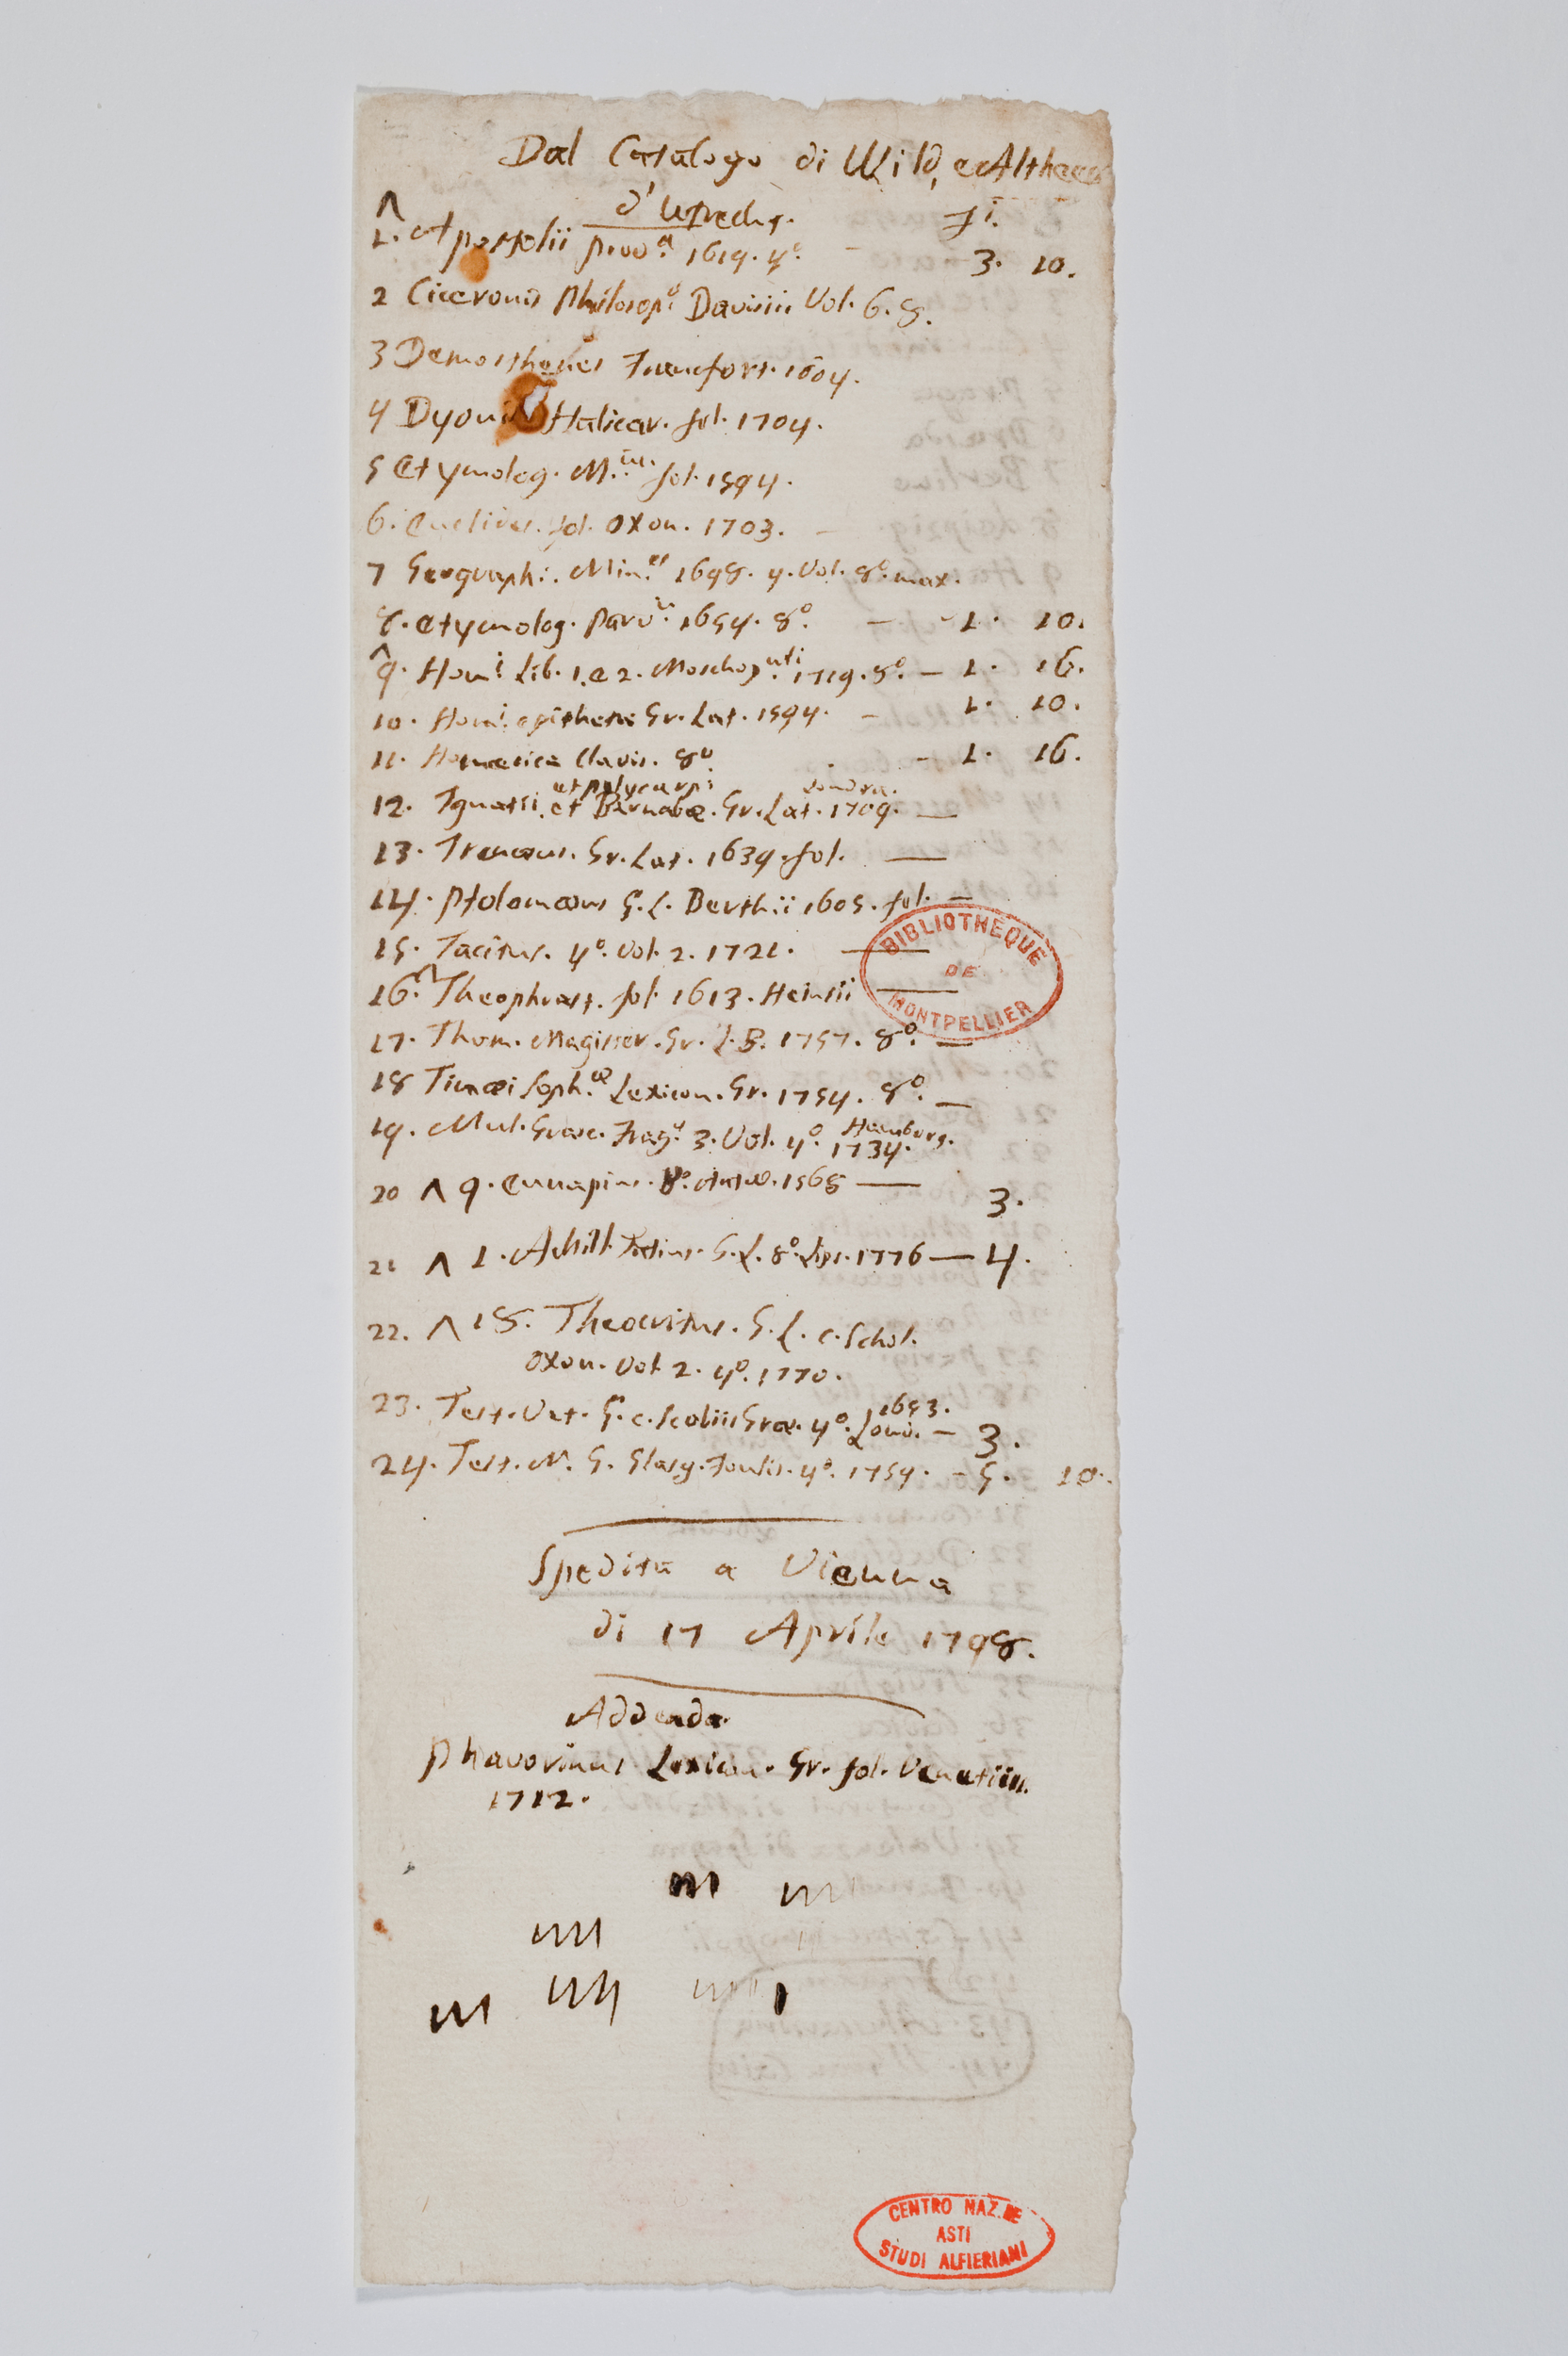 Dal Catalogo di Wild, e Altheer
d'Utrecht. fi.
1. Apostolii prov.a 1619. 4o. - 3. 10.
2 Ciceronis Philosop.o Davisii Vol. 6. 8.
3 Demosthenes Francfort. 1604.
4 Dyonis Halicar. fol. 1704.
5 Etymolog. M.m. fol. 1594.
6. Euclides. fol. Oxon. 1703. -
7 Geograph. Min.es 1698. 4. Vol. 8o. max.
8. Etymolog. Parv. 1654. 8o. - - 1. 10.
9. Hom.i Lib. 1. e 2. Moschop.uli 1719. 8o. - 1. 16.
10. Hom.i epitheta Gr. Lat. 1594. - 1. 10.
11. Homerica Clavis. 8o. - 1. 16.
et Polycarpi Londra.
12. Ignatii. et Barnabæ. Gr. Lat. 1709. —
13. Irenæus. Gr. Lat. 1639. fol. —
14. Ptolomæus G. L. Berthii 1605. fol. —
15. Tacitus. 4o. Vol. 2. 1721. —
16. Theophrast. fol. 1613. Heinsii —
17. Thom. Magister. Gr. L. B. 1757. 8o. —
18 Timæi Soph.æ Lexicon. Gr. 1754. 8o. —
19. Mul. Græc. Frag. 3. Vol. 4o. Hamburg. 1734.
20 ^ 9. Eunapius. 8o. Antw. 1568 — 3.
21 ^ 1. Achill. Tatius. G. L. 8o. Lips. 1776 — 4.
22. ^ 18. Theocritus. G. L. c. Schol.
Oxon. Vol. 2. 4o. 1770.
23. Test. Vet. G. c. Scoliis Græ. 4o. Lond. 1653. - 3.
24. Test. N. G. Glasg. Foulis. 4o. 1754. - 5. 10.
Spedita a Vienna
di 17 Aprile 1798.
Addenda
Phavorinus Lexicon. Gr. fol. Venetiis.
1712.
BIBLIOTHEQUE
DE
MONTPELLIER
CENTRO NAZ. DE
ASTI
STUDI ALFIERIANI